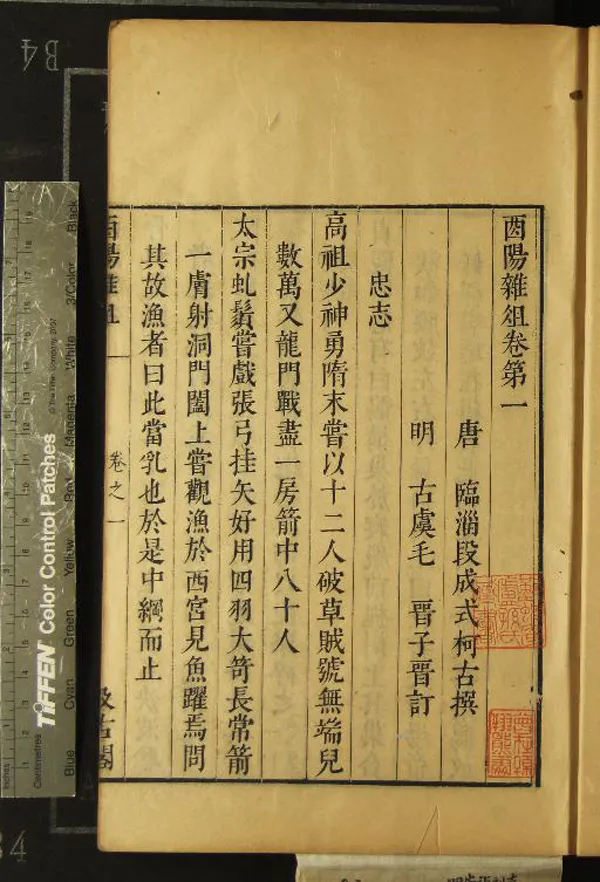 酉陽雜俎卷第一
唐 臨淄段成式柯古撰
明 古虞毛 晉子晉訂
忠志
高祖少神勇隋末嘗以十二人破草賊號無端兒
數萬又龍門戰盡一房箭中八十人
太宗虬鬚嘗戲張弓挂矢好用四羽大笴長常箭
一膚射洞門闔上嘗觀漁於西宮見魚躍焉問
其故漁者曰此當乳也於是中綱而止
酉陽雜俎
卷之一
汲古閣
B4
TIFFEN Color Control Patches
© The Tiffen Company, 2007
Inches
Centimetres
Blue
Cyan
Green
Yellow
Red
Magenta
White
3/Color
Black